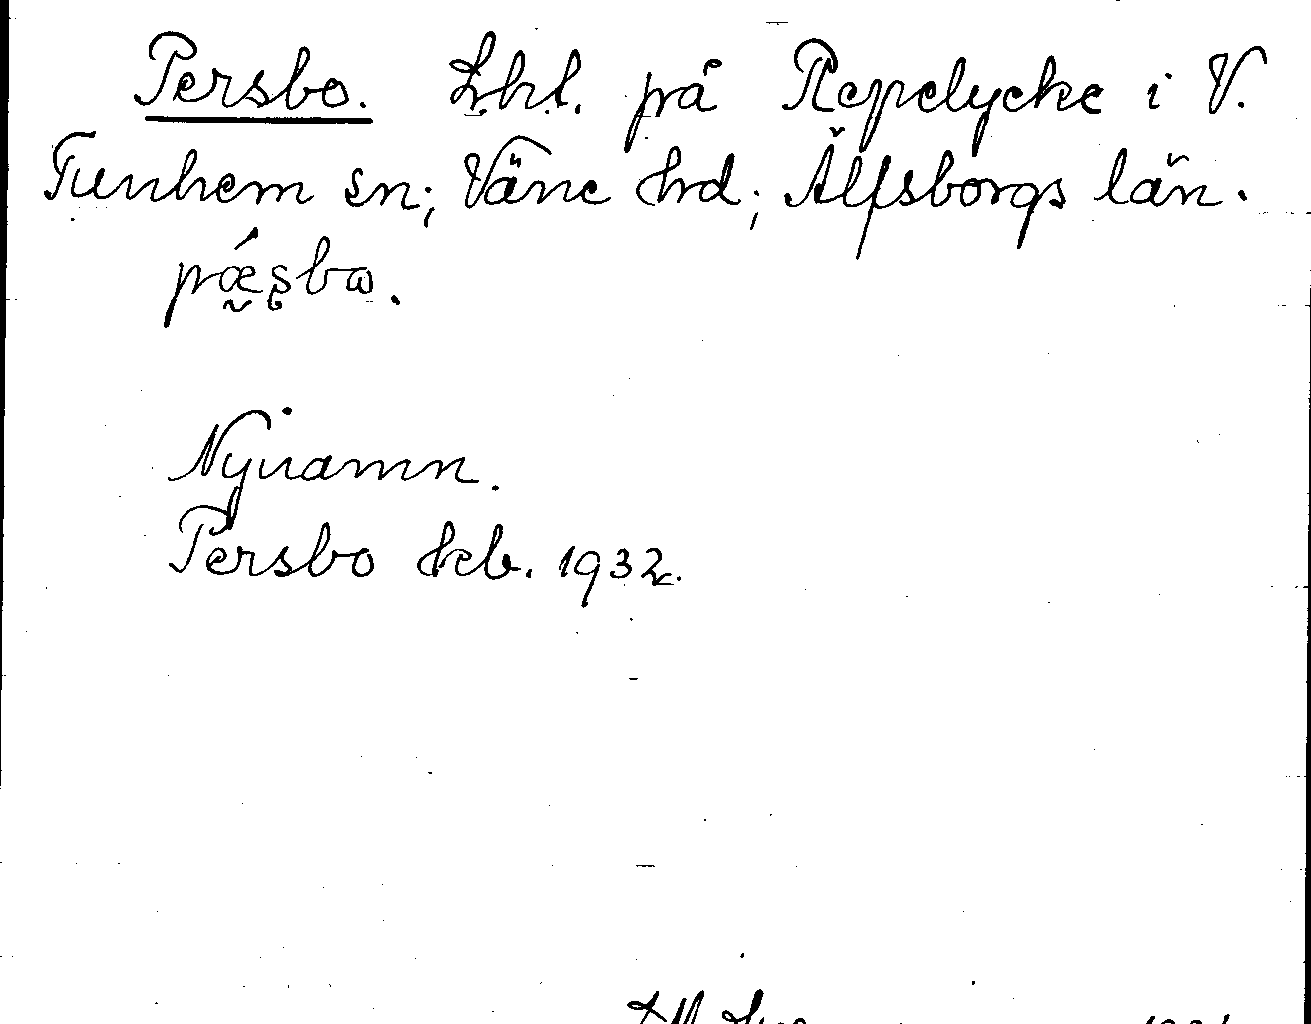 Persbo. Lht. på Repelycke i V.
Tunhem sn; Väne hrd; Älfsborgs län.
pǽ̰ʂbɷ.
Nynamn.
Persbo Jeb. 1932.